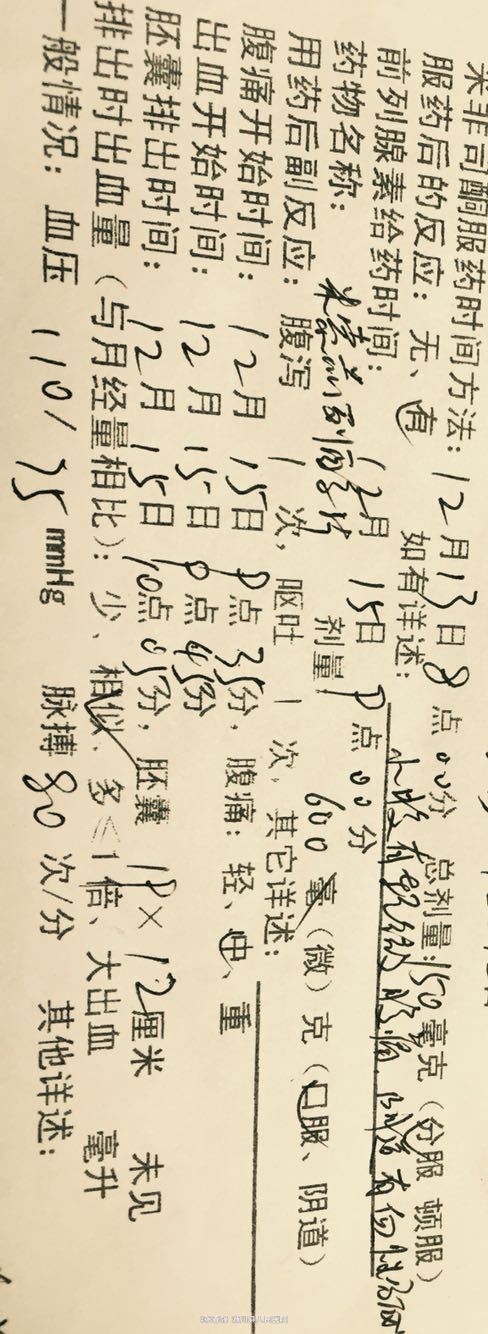 米非司酮服药时间方法：12月13日8点00分 总剂量：150毫克（分服 顿服）
服药后的反应：无、有 如有详述：
前列腺素给药时间：12月15日9点00分
药物名称：米索前列醇 剂量 600毫（微）克（口服、阴道）
用药后副反应：腹泻 1 次，呕吐 1 次，其它详述：
腹痛开始时间：12月15日9点35分，腹痛：轻、中、重
出血开始时间：12月15日9点45分
胚囊排出时间：12月15日10点05分，胚囊 19×12厘米 未见
排出时出血量（与月经量相比）：少、相似、多＜1倍、大出血 毫升
一般情况：血压 110/75mmHg 脉搏80次/分 其他详述：